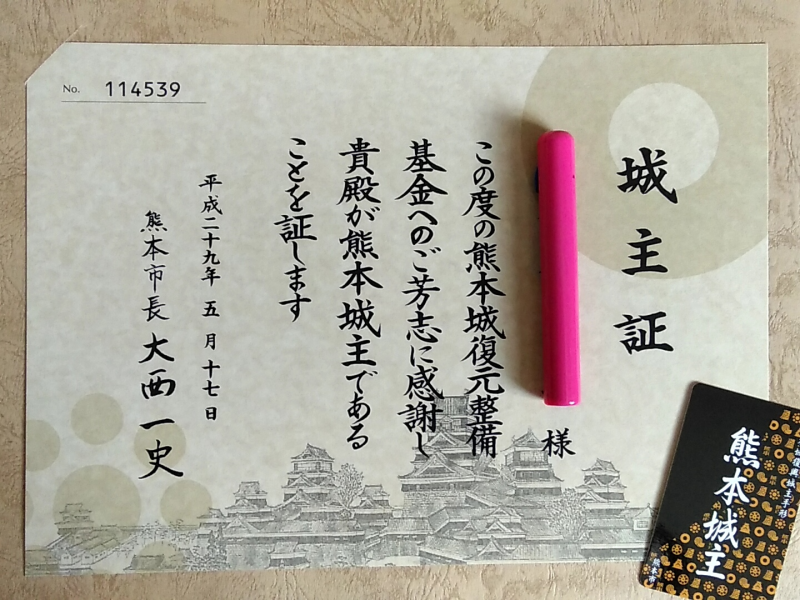 No. 114539
城主証
様
この度の熊本城復元整備
基金へのご芳志に感謝し
貴殿が熊本城主である
ことを証します
平成二十九年 五月十七日
熊本市長 大西一史
復興城主手形
熊本城主
熊本市